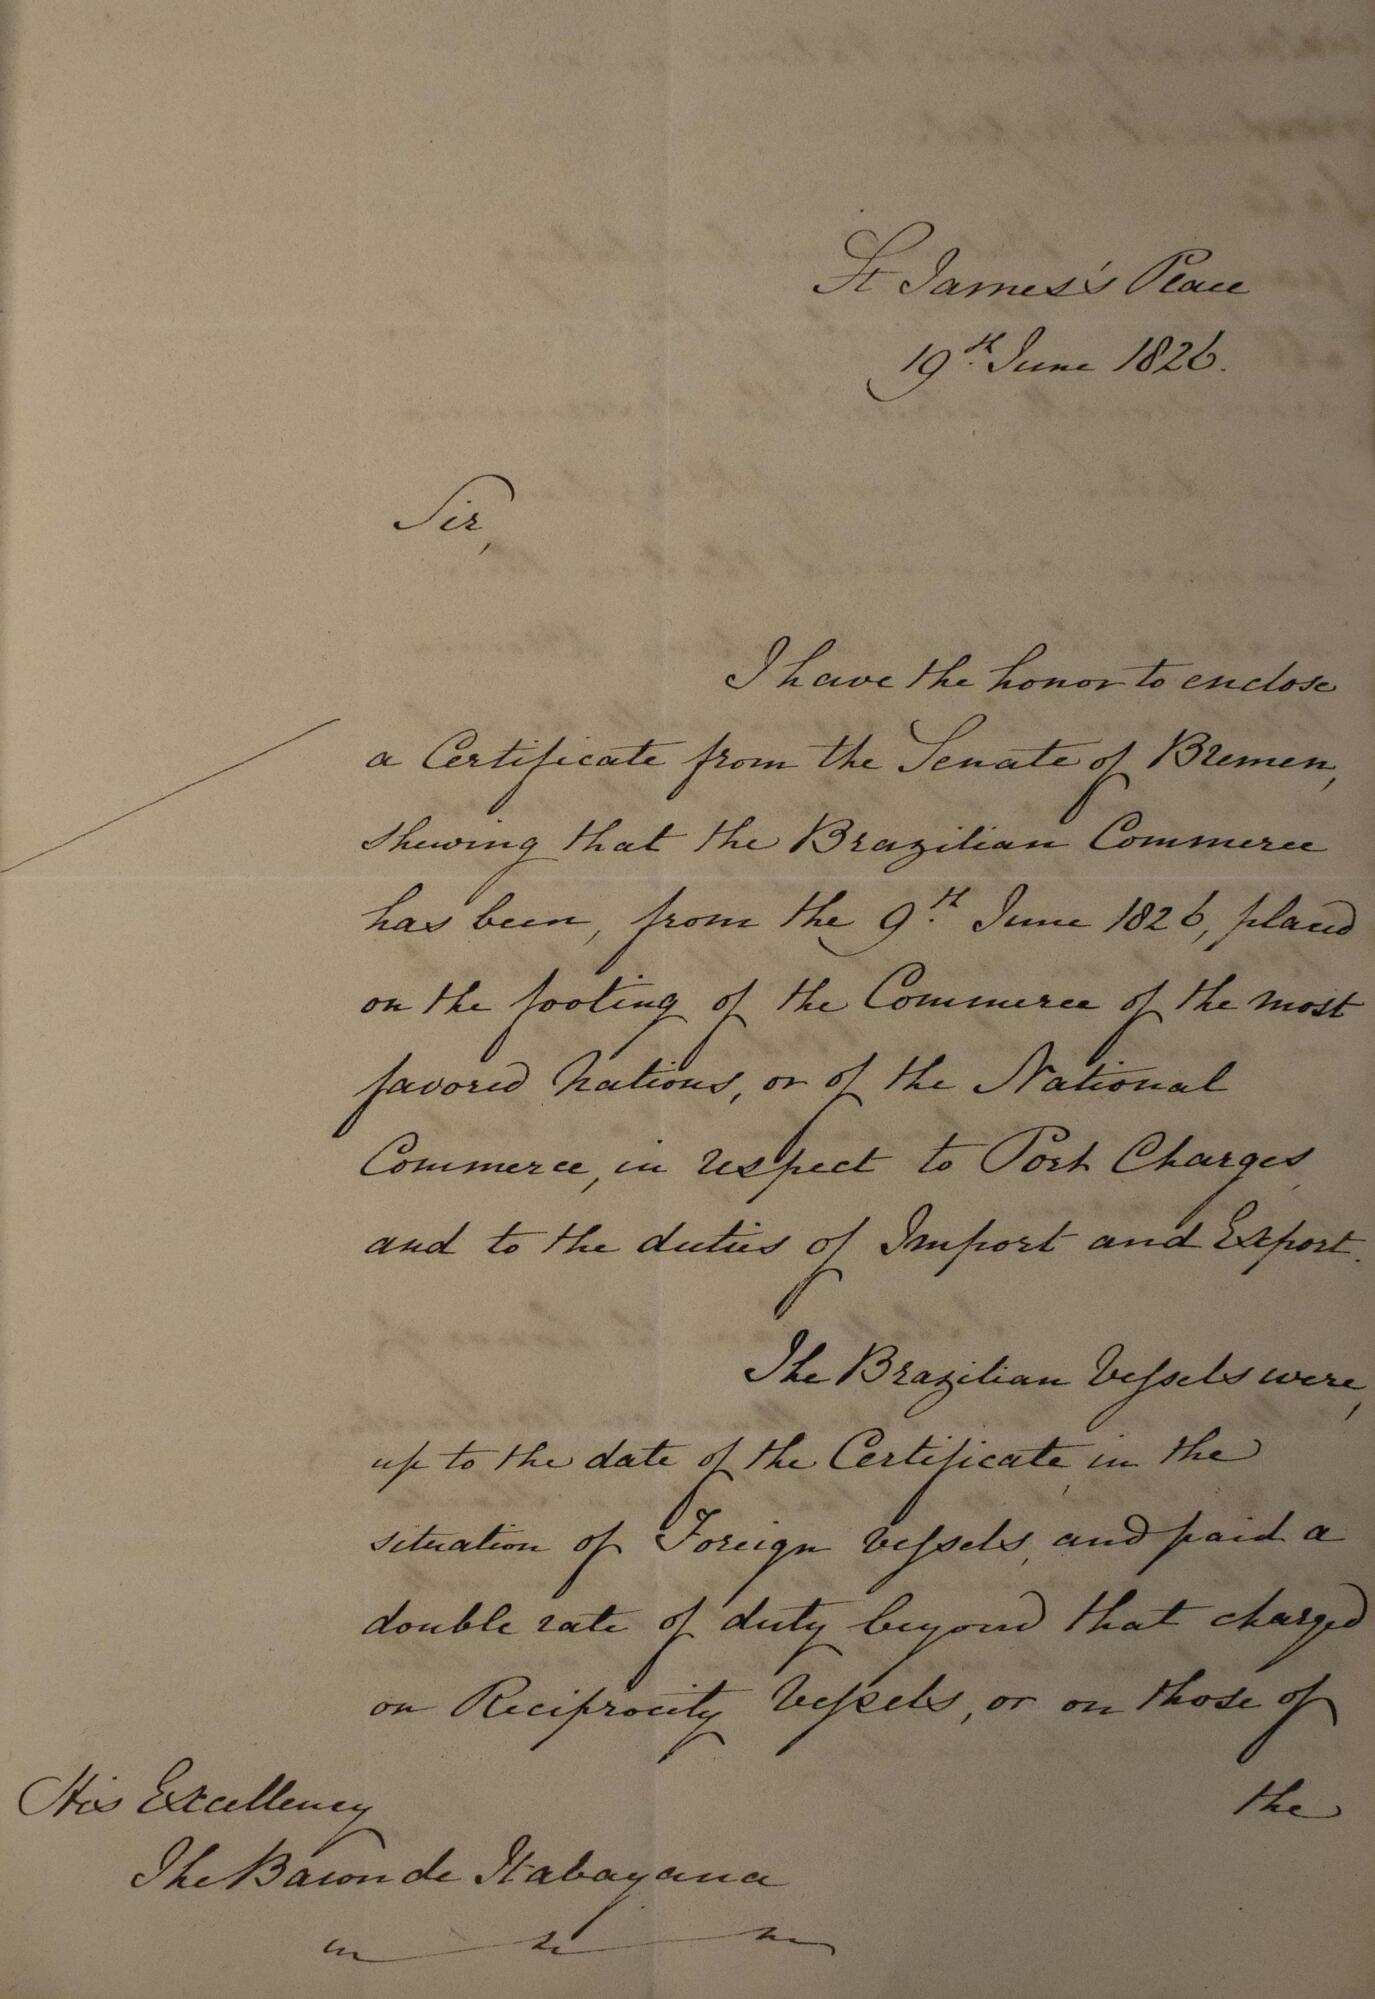 St James's Place
19th June 1826.
Sir,
I have the honor to enclose
a Certificate from the Senate of Bremen,
shewing that the Brazilian Commerce
has been, from the 9th June 1826, placed
on the footing of the Commerce of the most
favored Nations, or of the National
Commerce, in respect to Port Charges,
and to the duties of Import and Export.
The Brazilian Vessels were,
up to the date of the Certificate, in the
situation of Foreign vessels, and paid a
double rate of duty beyond that charged
on Reciprocity Vessels, or on those of
the
His Excellency
The Baron de Itabayana